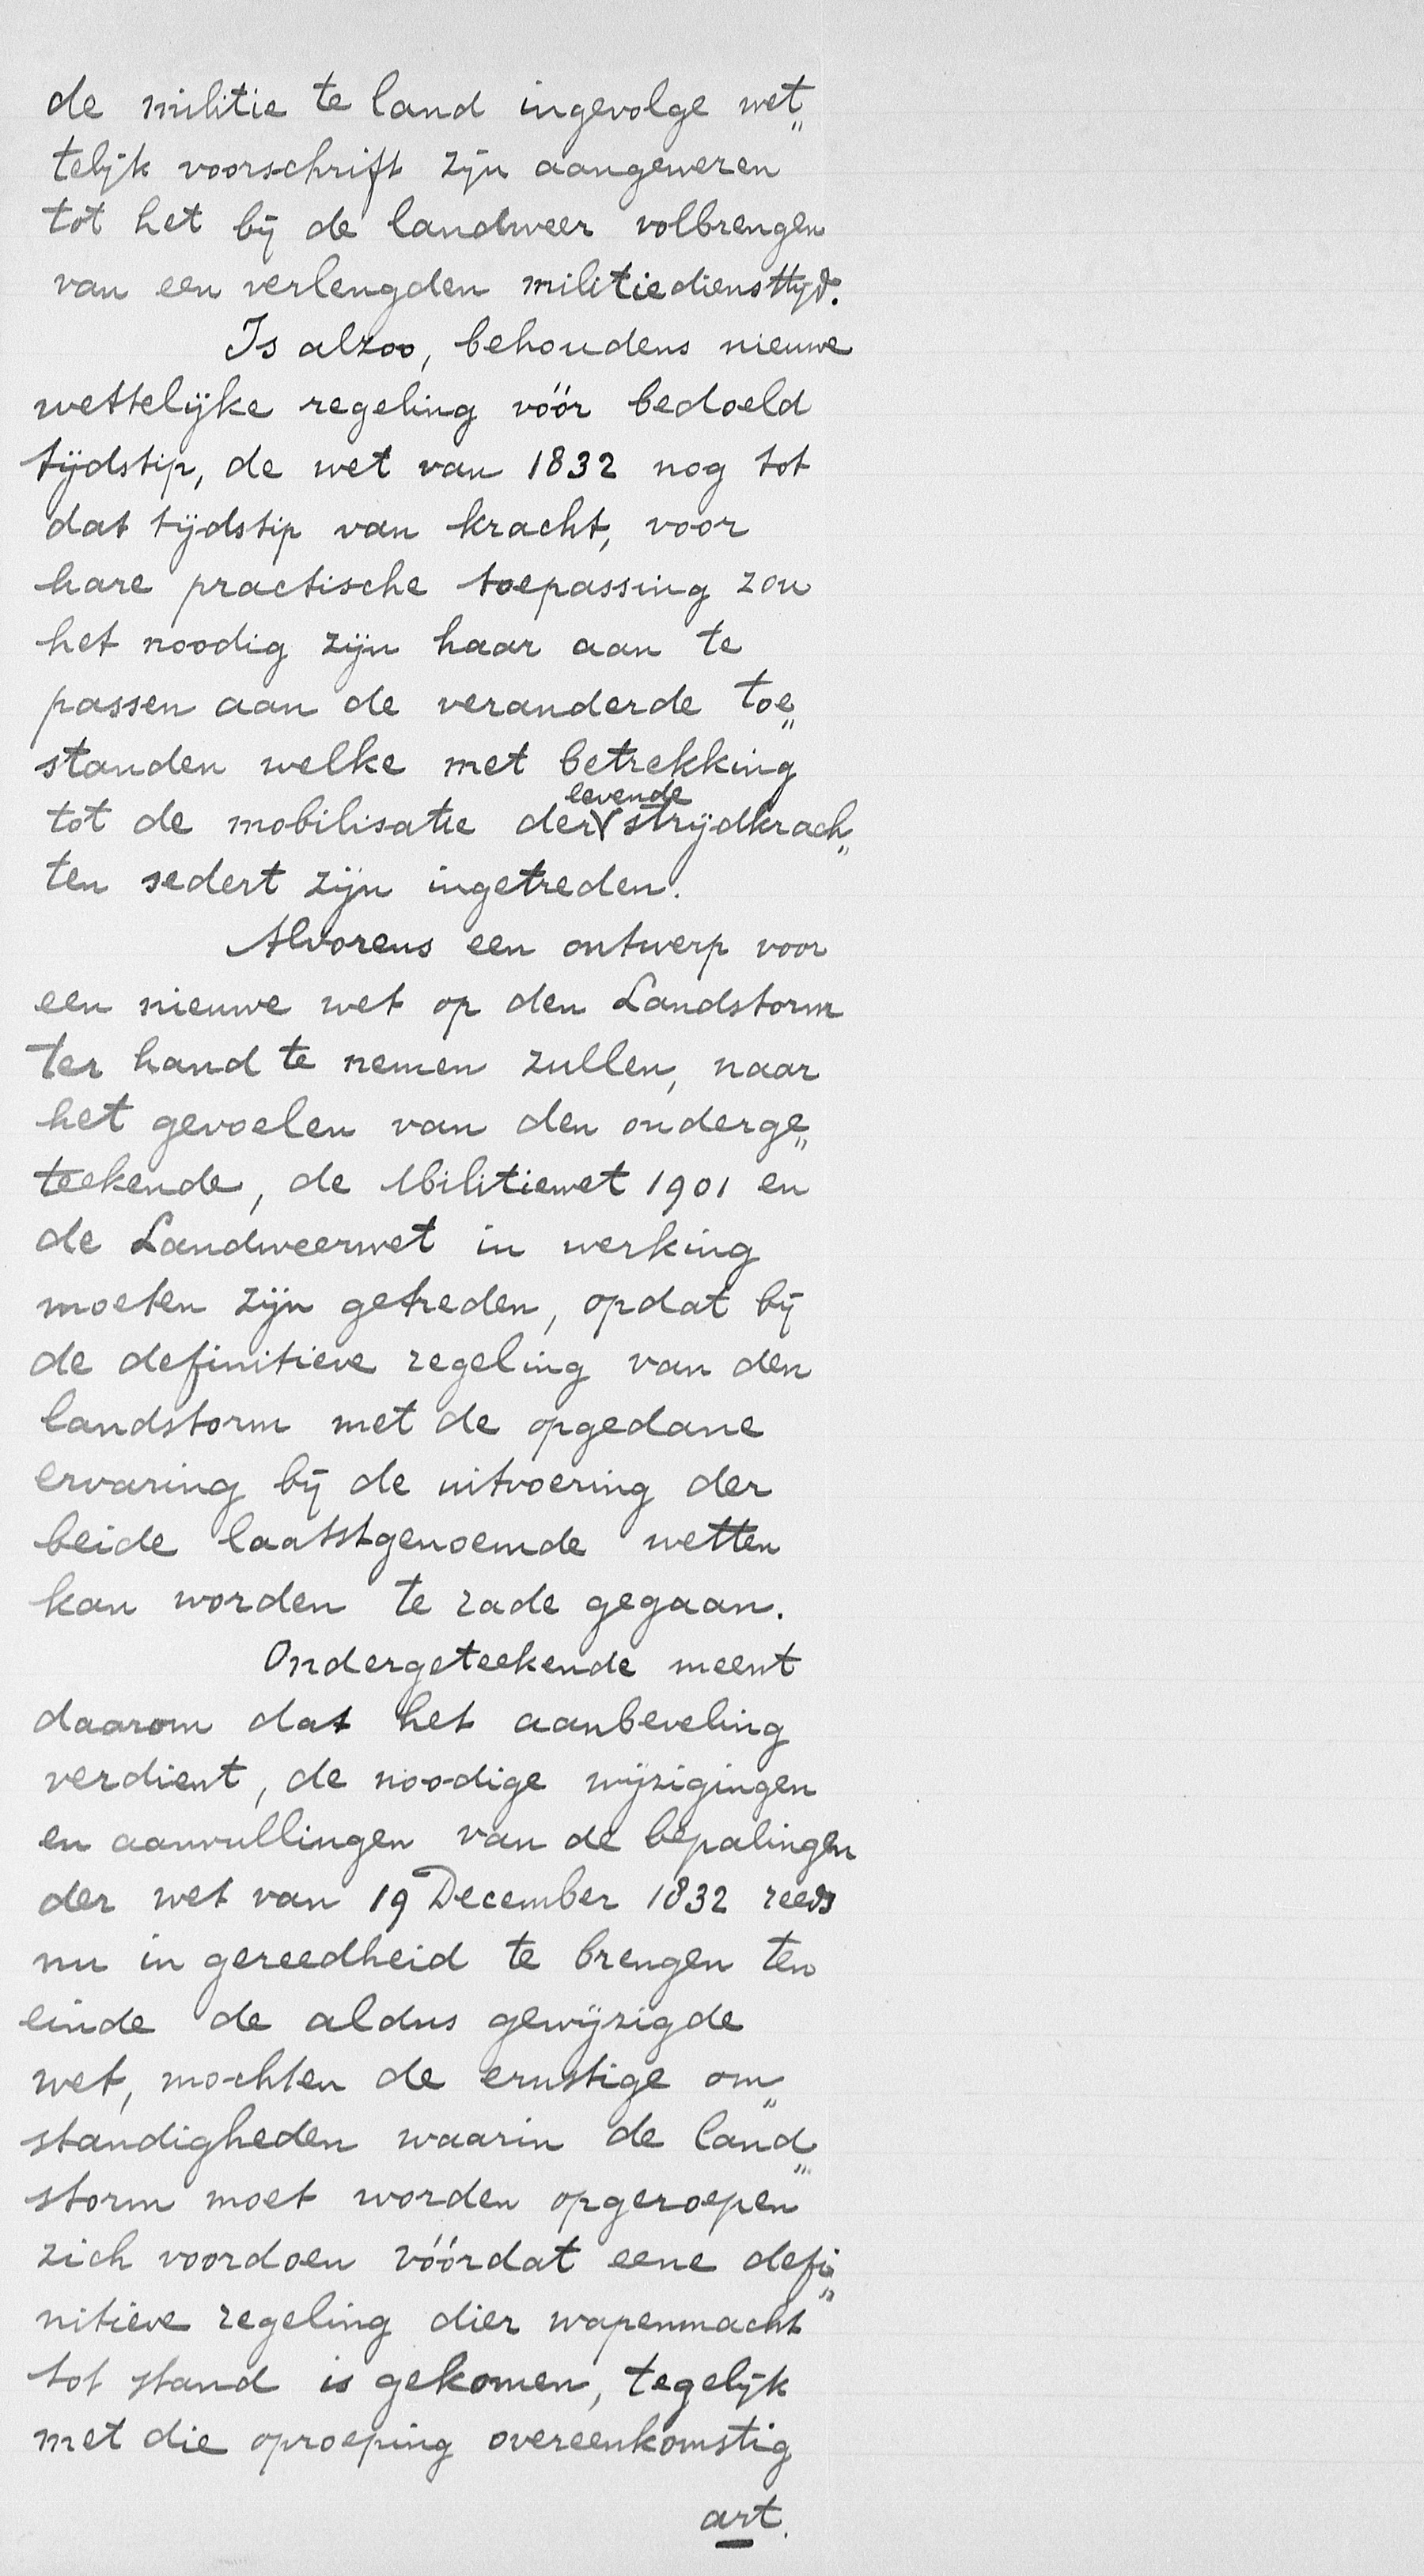 de militie te land ingevolge wet„
telijk voorschrift zijn aangewezen
tot het bij de landweer volbrengen
van een verlengden militiediensttijd.
Is alzoo, behoudens nieuwe
wettelijke regeling vóór bedoeld
tijdstip, de wet van 1832 nog tot
dat tijdstip van kracht, voor
hare practische toepassing zou
het noodig zijn haar aan te
passen aan de veranderde toe„
standen welke met betrekking
levende
tot de mobilisatie der strijdkrach„
ten sedert zijn ingetreden.
Alvorens een ontwerp voor
een nieuwe wet op den Landstorm
ter hand te nemen zullen, naar
het gevoelen van den onderge„
teekende, de Militiewet 1901 en
de Landweerwet in werking
moeten zijn getreden, opdat bij
de definitieve regeling van den
landstorm met de opgedane
ervaring bij de uitvoering der
beide laatstgenoemde wetten
kan worden te rade gegaan.
Ondergeteekende meent
daarom dat het aanbeveling
verdient, de noodige wijzigingen
en aanvullingen van de bepalingen
der wet van 19 December 1832 reeds
nu in gereedheid te brengen ten
einde de aldus gewijzigde
wet, mochten de ernstige om„
standigheden waarin de land„
storm moet worden opgeroepen
zich voordoen vóórdat eene defi„
nitieve regeling dier wapenmacht
tot stand is gekomen, tegelijk
met die oproeping overeenkomstig
art.